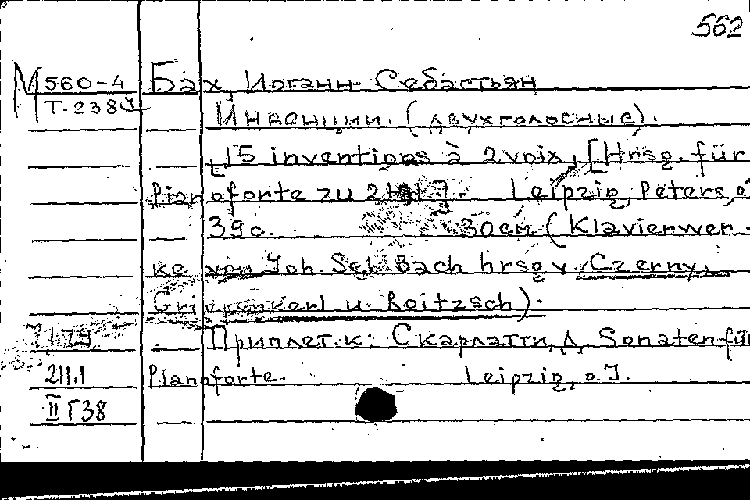 562
М 560-4 Бах, Иоганн Себастьян
Т-238
Инвенции. (двухголосные).
[15 inventions à 2 voix, [Hrsg. für
Pianoforte zu 2 Leipzig, Peters, o
39 c. 30 см (Klavierwer-
ke von Joh. Seb. Bach hrsg v. Czerny,
Grippenkerl u. Roitzsch).
Приплет. к: Скарлатти, Д. Sonaten für
211.1 Pianoforte. Leipzig, o J.
II Г38